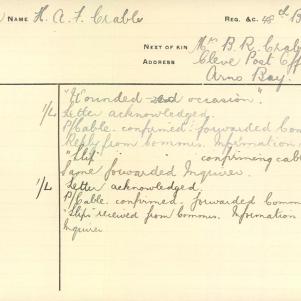 NAME H. A. F. Crabb REG. &C. 48th B
NEXT OF KIN Mr B. R. Crab
ADDRESS Cleve Post Off
Arno Bay.
"Wounded 2nd occasion".
1/L Letter acknowledged.
P/Cable. confirmed. forwarded Com
Reply from Commrs. Information
"Slip" confirming cab
Same forwarded Inquirer.
1/L Letter acknowledged.
P/Cable. confirmed. forwarded Comm
"Slip" recieved from Commrs. Information
Inquirer